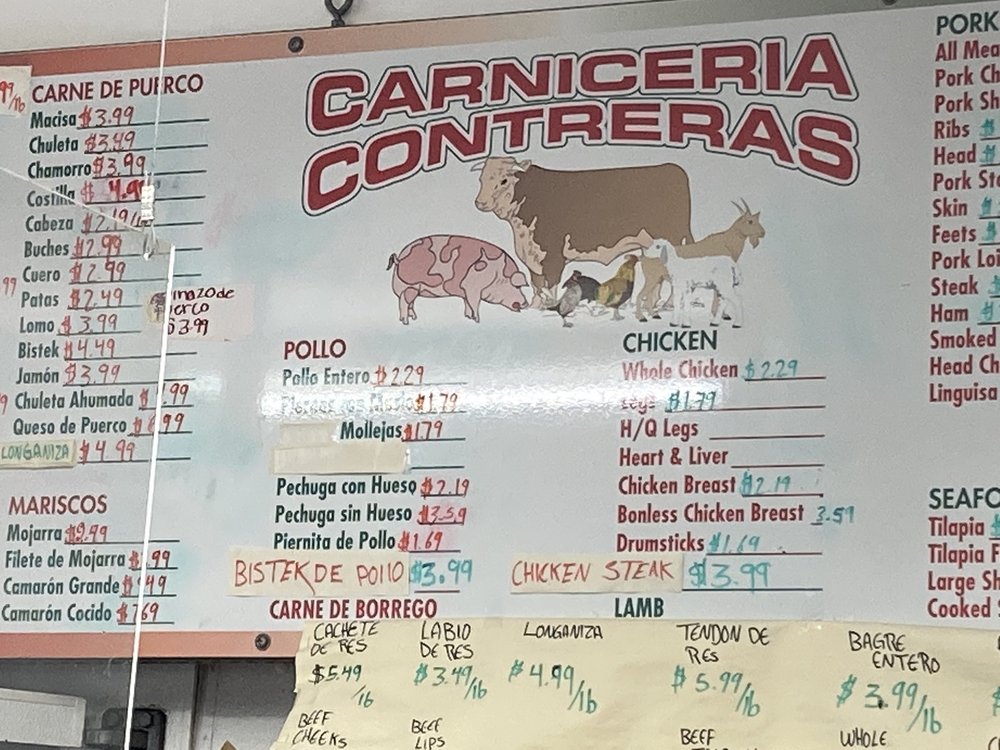 CARNICERIA
CONTRERAS
99/lb
CARNE DE PUERCO
Macisa $3.99
Chuleta $3.49
Chamorro $3.99
Costilla $4.99
Cabeza $2.19/lb
Buches $2.99
Cuero $2.99
Patas $2.49
Lomo $3.99
Bistek $4.49
Jamón $3.99
Chuleta Ahumada
Queso de Puerco
LONGANIZA $4.99
$3.99
MARISCOS
Mojarra
Filete de Mojarra
Camarón Grande
Camarón Cocido $7.69
POLLO
Pollo Entero $2.29
$1.79
Mollejas $1.79
Pechuga con Hueso $2.19
Pechuga sin Hueso $3.59
Piernita de Pollo $1.69
BISTEK DE POLLO $3.99
CARNE DE BORREGO
CHICKEN
Whole Chicken $2.29
Legs $1.79
H/Q Legs
Heart & Liver
Chicken Breast $2.19
Bonless Chicken Breast 3.59
Drumsticks $1.69
CHICKEN STEAK $3.99
LAMB
PORK
All Mea
Pork Ch
Pork Sh
Ribs $
Head $
Pork Ste
Skin $
Feets $
Pork Loi
Steak $
Ham $
Smoked
Head Ch
Linguisa
SEAFO
Tilapia $
Tilapia F
Large Sh
Cooked
CACHETE
DE RES
$5.49
/lb
LABIO
DE RES
$3.49/lb
LONGANIZA
$4.99/lb
TENDON DE
RES
$5.99/lb
BAGRE
ENTERO
$3.99/lb
BEEF
CHEEKS
BEEF
LIPS
BEEF
WHOLE